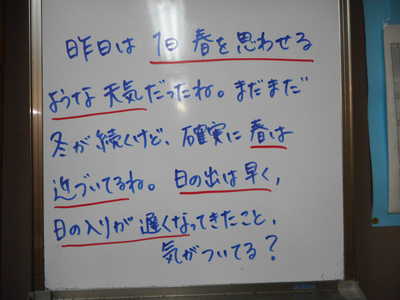 昨日は 1日 春を思わせる
ような 天気だったね。まだまだ
冬が 続くけど、確実に 春は
近づいてるね。日の出は早く，
日の入りが 遅くなってきたこと、
気がついてる？